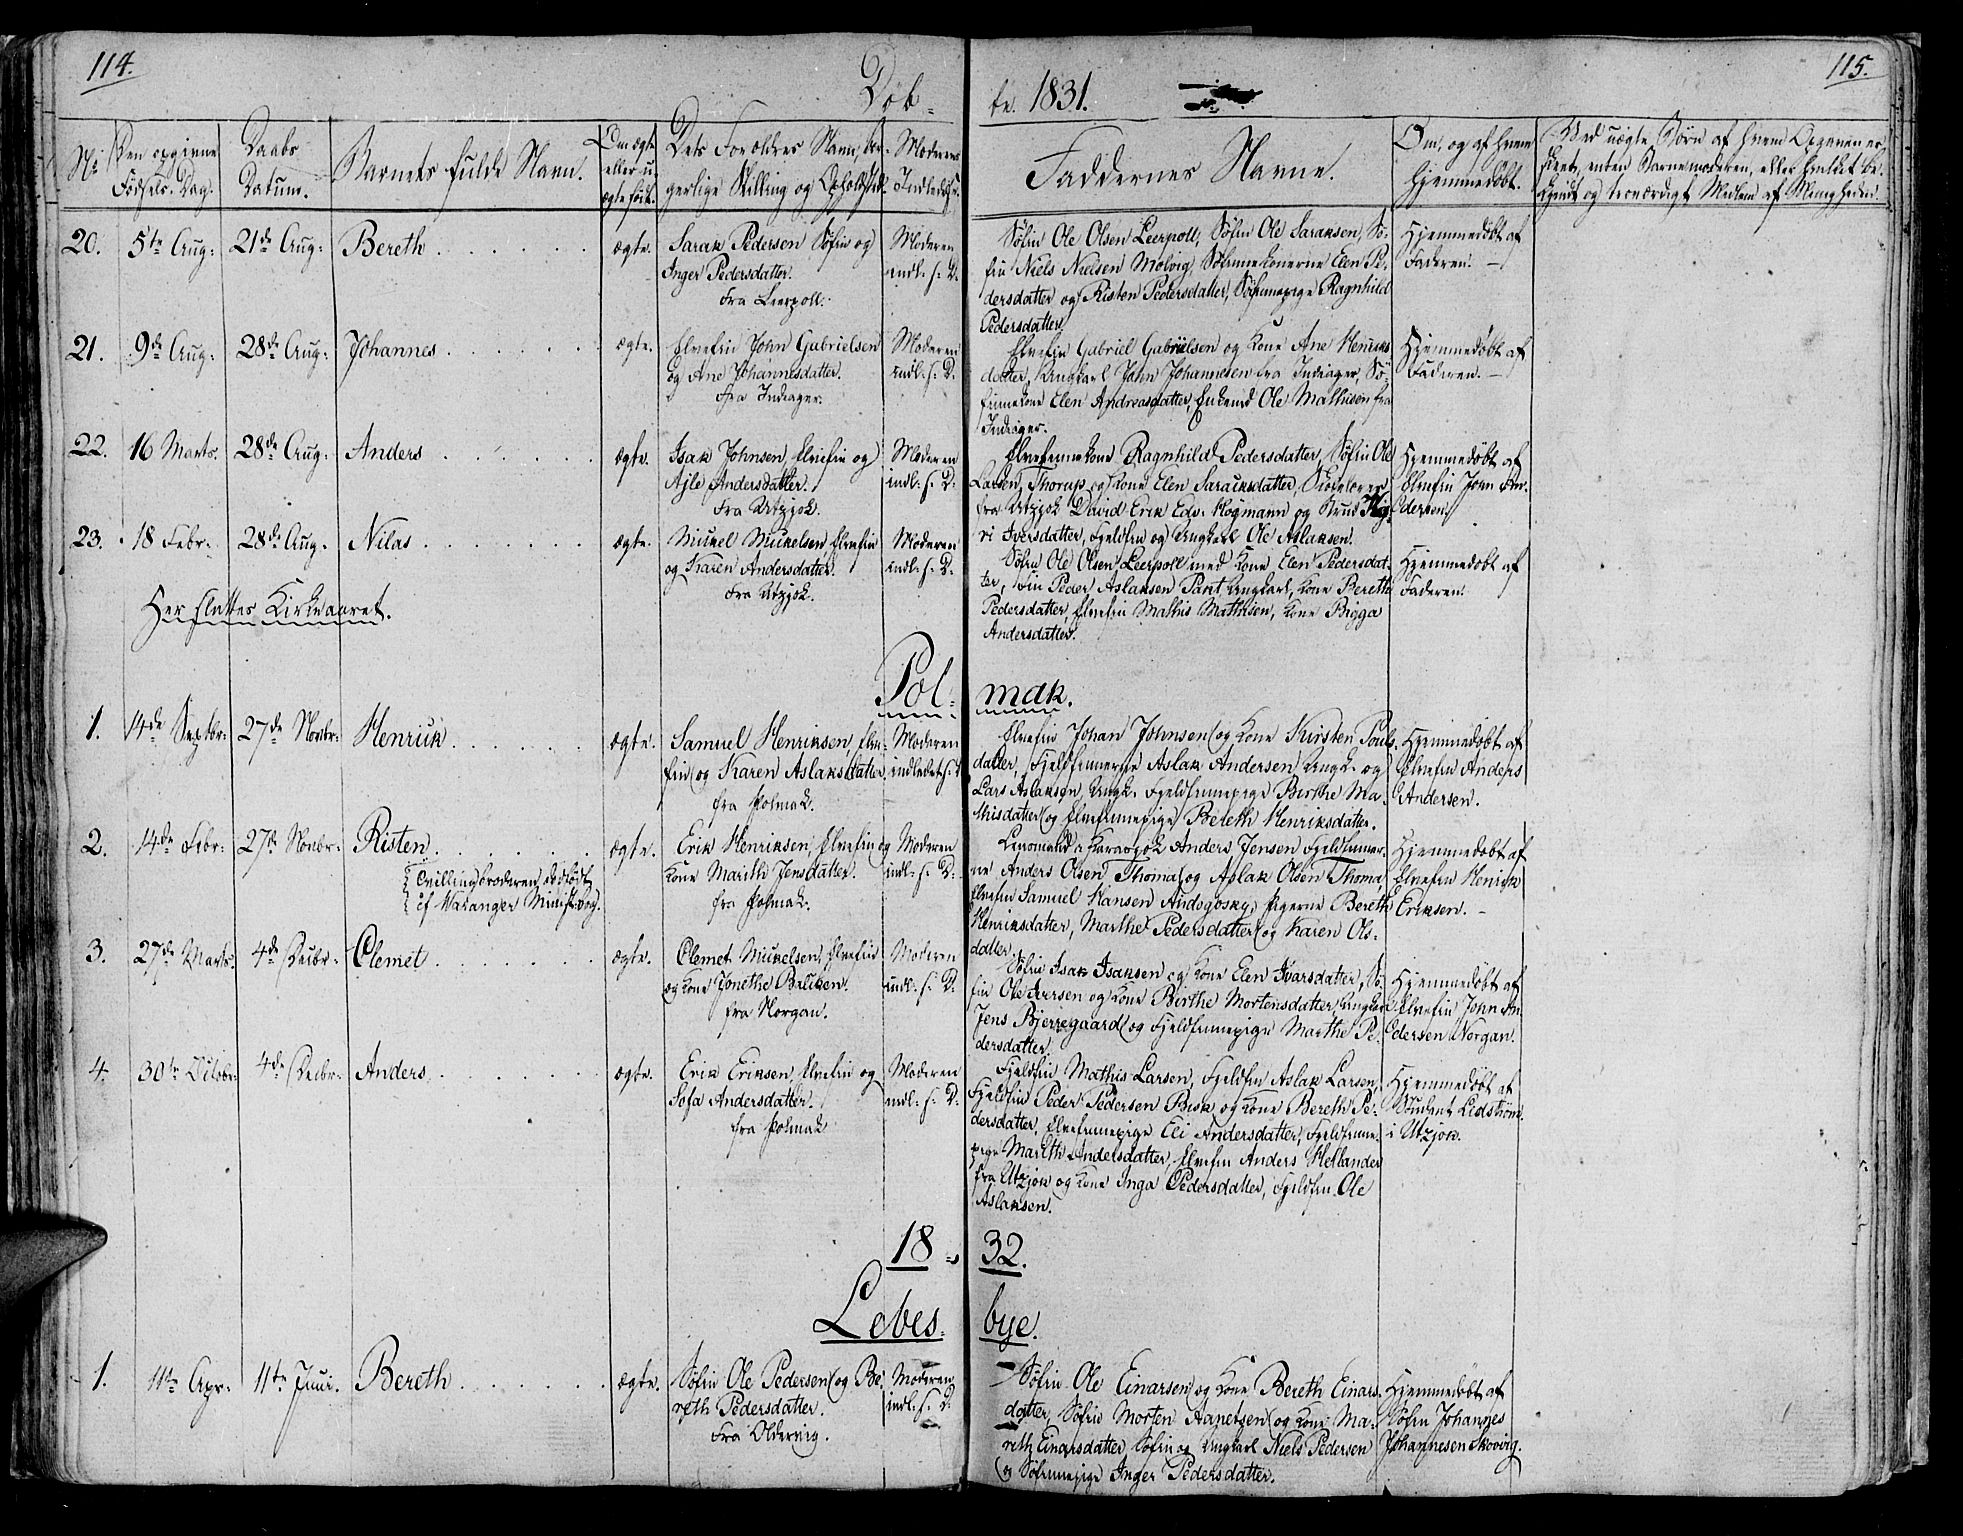 114.
115.
Döb-
te. 1831.
No
Den opgivne Födsels-Dag.
Daabs Datum.
Barnets fulde Navn.
Om ægte eller uægte født.
Dets Forældres Navn, borgerlige Stilling og Opholdsted.
Moderens Indledelse.
Faddernes Navne.
Om, og af hvem hjemmedöbt.
Ved uægte Börn af hvem Opgivelsen er skeet, enten Barnemoderen, eller hvilket be-
og troværdigt Medlem af Menigheden.
20. 5te Aug: 21de Aug: Bereth ægte.
Sarak Pedersen Söfin og
Inger Pedersdatter.
fra Leerpoll.
Moderen
indl: s: D:
Söfin Ole Olsen Leerpoll, Söfin Ole Saraksen, Sö-
fin Niels Nielsen Molvig, Söfinnekonerne Elen Pe-
dersdatter og Risten Pedersdatter, Söfinnepige Ragnhild
Pedersdatter.
Hjemmedöbt af
Faderen. —
21. 9de Aug: 28de Aug: Johannes ægte.
Elvefin John Gabrielsen
og Ane Johannesdatter.
fra Indiager.
Moderen
indl: s: D:
Elvefin Gabriel Gabrielsen og Kone Ane Henriks
datter, Ungkarl John Johannesen fra Indiager, Sö-
finnekone Elen Andreasdatter, Enkemd Ole Mathisen fra
Indiager.
Hjemmedöbt af
Faderen. —
22. 16 Marts. 28de Aug: Anders ægte.
Isak Johnsen, Elvefin og
Ajle Andersdatter.
fra Utzjok.
Moderen
indl: s: D:
Elvefinnekone Ragnhild Pedersdatter, Söfin Ole
Larsen, Thorup og Kone Elen Saraksdatter,
fra Utzjok David Erik Edv: Högmann og Brud
ri Iversdatter, Fjeldfin og Ungkarl Ole Aslaksen.
Hjemmedöbt af
Elvefin John An-
dersen.
23. 18 Febr: 28de Aug: Nilas ægte.
Mickel Mickelsen, Elvefin
og Karen Andersdatter.
fra Utzjok.
Moderen
indl: s: D:
Söfin Ole Olsen Leerpoll med Kone Elen Pedersdat-
ter, Fin Peder Aslaksen Pant, Ungkarl, Kone Bereth
Pedersdatter, Elvefin Mathis Mathisen, Kone Bigga
Andersdatter.
Hjemmedöbt af
Faderen.
Her sluttes Kirkeaaret.
Pol-
mak.
1. 14de Septbr: 27de Novbr: Henrick ægte.
Samuel Henriksen, Elve-
fin og Karen Aslaksdatter
fra Polmak.
Moderen
indledet s: D
Elvefin Johan Johnsen og Kone Kirsten Pouls-
datter, Fjeldfinnerne Aslak Andersen Ungk. og
Lars Aslaksen, Ungk. Fjeldfinnepige Birthe Ma-
thisdatter og Elvefinnepige Bereth Henriksdatter.
Hjemmedöbt af
Elvefin Anders
Andersen.
2. 14de Febr: 27de Novbr: Risten ægte.
Tvillingbroderen dödfödt
cf Waranger Minist:bog.
Erik Henriksen, Elvefin og
Kone Marith Jensdatter.
fra Polmak.
Moderen
indl: s: D:
Lensmand i Karasjok Anders Jensen Fjeldfinner-
ne Anders Olsen Thoma og Aslak Olsen Thoma,
Elvefin Samuel Hansen Audogosky, Pigerne Bereth
Henriksdatter, Marthe Pedersdatter og Karen Ols-
datter.
Hjemmedöbt af
Elvefin Henrik
Eriksen. —
3. 27de Marts. 4de Decbr: Clemet ægte.
Clemet Mickelsen, Elvefin
og Kone Jonethe Balcken.
fra Norgan.
Moderen
indl: s: D:
Söfin Isak Isaksen og Kone Elen Ivarsdatter, Sö-
fin Ole Iversen og Kone Birthe Mortensdatter, Ungkarl
Jens Bjerregaard og Fjeldfinnepige Marthe Pe-
dersdatter.
Hjemmedöbt af
Elvefin John An-
dersen Norgan.
4. 30te Octobr: 4de Decbr: Anders ægte.
Erik Eriksen, Elvefin og
Sofa Andersdatter.
fra Polmak
Moderen
indl: s: D:
Fjeldfin Mathis Larsen, Fjeldfin Aslak Larsen,
Fjeldfin Peder Pedersen Bisk og Kone Bereth Pe-
dersdatter, Elvefinnepige Eli Andersdatter, Fjeldfinne-
pige Marith Andersdatter, Elvefin Anders Hellander
fra Utzjok og Kone Inga Pedersdatter, Fjeldfin Ole
Aslaksen.
Hjemmedöbt af
Student Lidström
i Utzjok.
18-
32.
Lebes-
bye.
1. 11te Apr: 11te Juni. Bereth ægte.
Söfin Ole Pedersen og Be-
reth Pedersdatter.
fra Oldervig.
Moderen
indl: s: D:
Söfin Ole Einarsen og Kone Bereth Einars-
datter, Söfin Morten Agnetsen og Kone Ma-
reth Einarsdatter, Söfin og Ungkarl Niels Pedersen
og Söfinnepige Inger Pedersdatter.
Hjemmedöbt af
Söfin Johannes
Johannesen Skovvig.